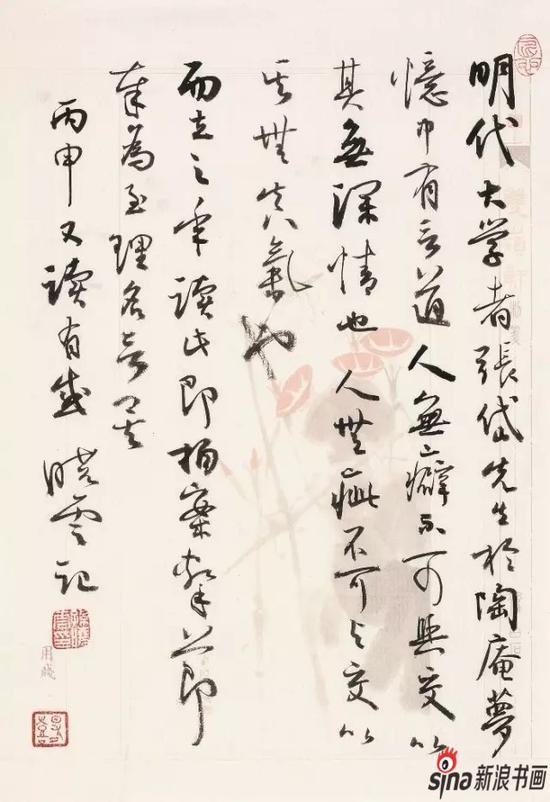 明代大学者張岱先生於陶庵夢
憶中有言道人無癖不可與交以
其無深情也人無疵不可与交以
其無真氣也
而立之年读此即拍案擊節即
奉為至理名言矣
丙申又读有感 晓雲記
用牋
sina新浪书画